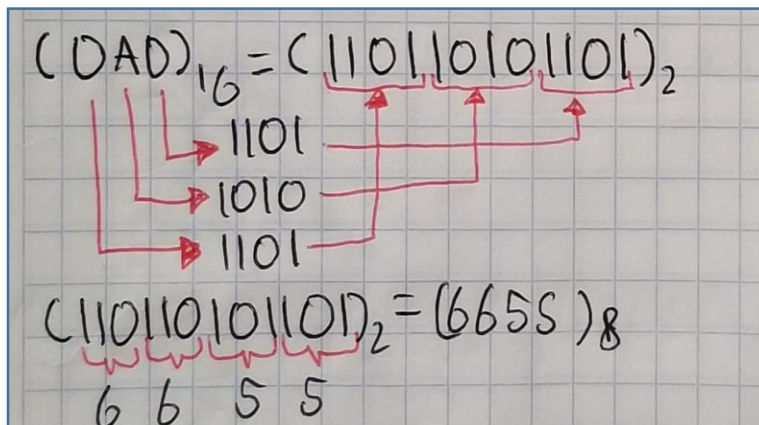 (DAD)16 = (110110101101)2
1101
1010
1101
(110110101101)2 = (6655)8
6 6 5 5